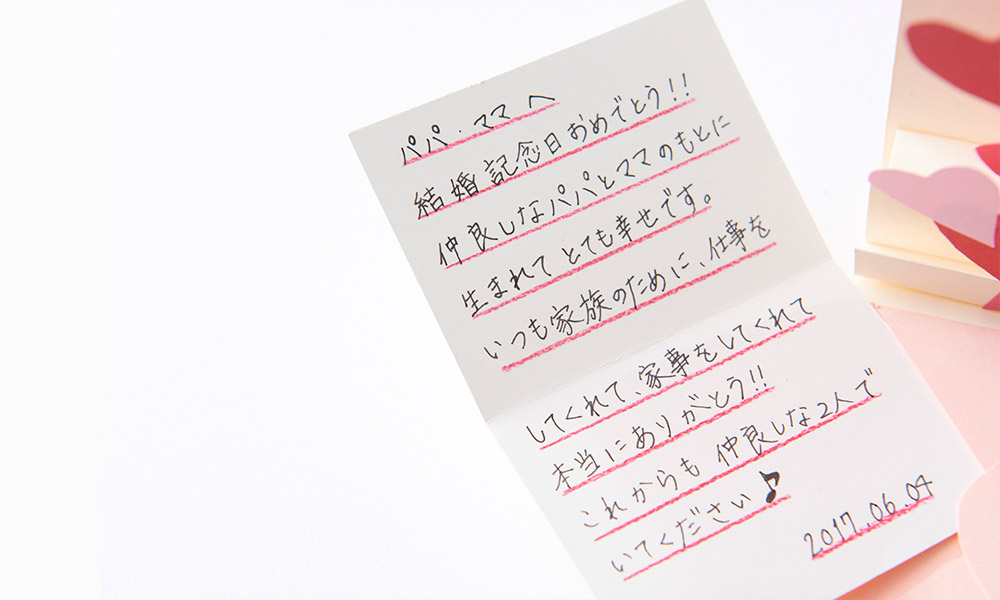 パパ・ママへ
結婚記念日おめでとう!!
仲良しなパパとママのもとに
生まれてとても幸せです。
いつも家族のために、仕事を
してくれて、家事をしてくれて
本当にありがとう!!
これからも仲良しな2人で
いてください♪
2017.06.04